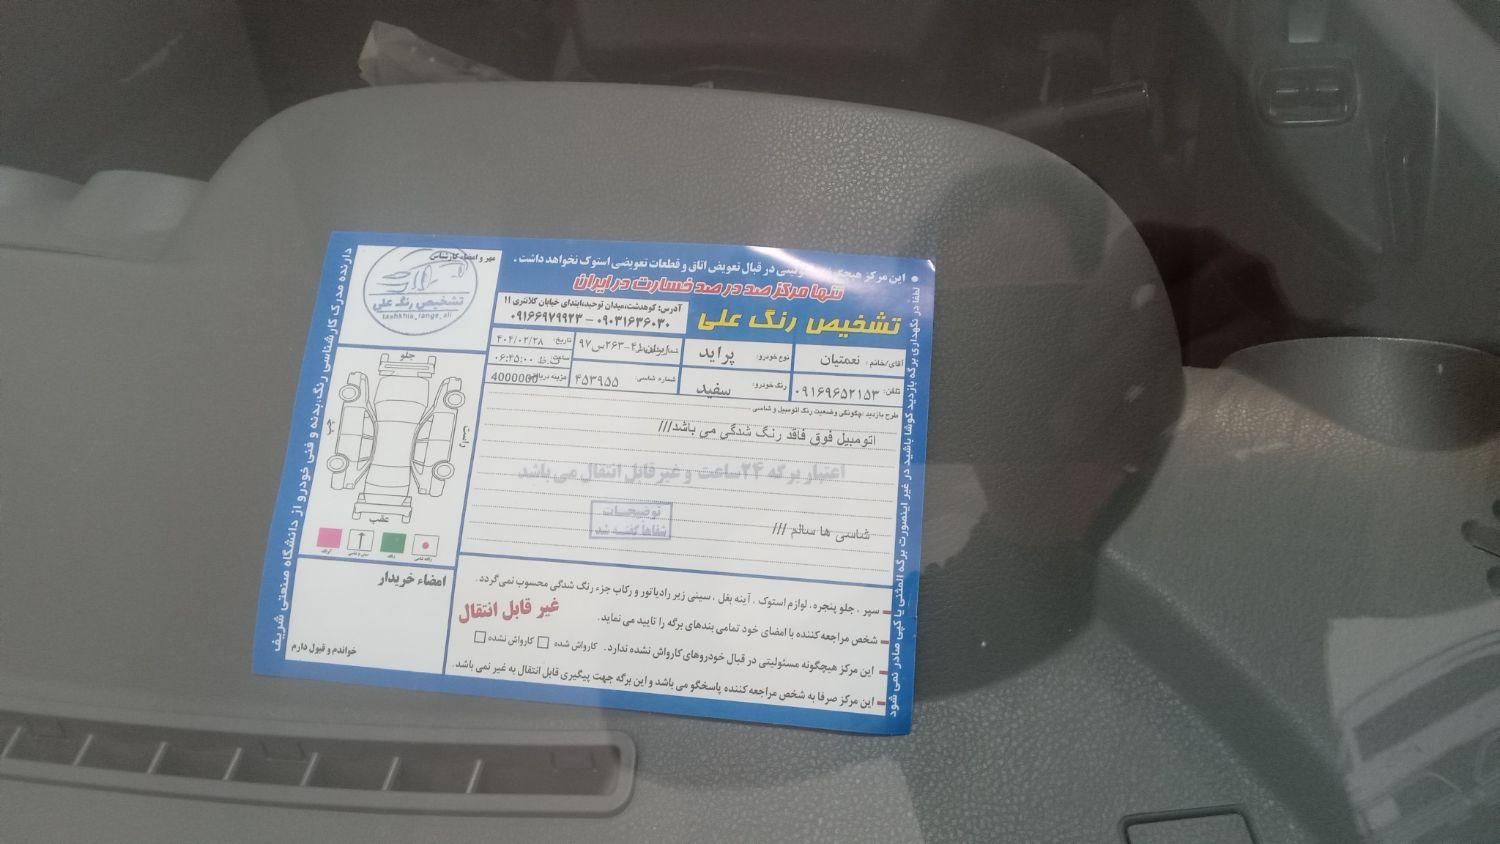 این مرکز در قبال تعویض اتاق و قطعات تعویضی استوک نخواهد داشت .
تنها مرکز صد در صد خسارت در ایران
تشخیص رنگ علی
آدرس: کوهدشت،میدان توحید،ابتدای خیابان کلانتری ۱۱
۰۹۰۳۱۶۳۶۰۳۰ – ۰۹۱۶۶۹۷۹۹۲۳
مهر و امضاء کارشناس
تشخیص رنگ علی
tashkhis_range_ali
آقای/خانم : نعمتیان
نوع خودرو: پراید
ایران ۴۱-۲۶۳س۹۷
تاریخ: ۴۰۴/۰۲/۲۸
تلفن: ۰۹۱۶۹۶۵۲۱۵۳
رنگ خودرو: سفید
شماره شاسی: ۴۵۳۹۵۵
ساعت: ۰۶:۴۵:۰۰ ب.ظ
هزینه 4000000
طرح بازدید :چگونگی وضعیت رنگ اتومبیل و شاسی
اتومبیل فوق فاقد رنگ شدگی می باشد///
اعتبار برگه ۲۴ساعت و غیرقابل انتقال می باشد
توضیحات
شفاها گفته شد
شاسی ها سالم ///
جلو
راست
چپ
عقب
امضاء خریدار
خواندم و قبول دارم
سپر ، جلو پنجره، لوازم استوک ، آینه بغل ، سینی زیر رادیاتور و رکاب جزء رنگ شدگی محسوب نمی‌گردد.
شخص مراجعه کننده با امضای خود تمامی بندهای برگه را تایید می نماید.
غیر قابل انتقال
این مرکز هیچگونه مسئولیتی در قبال خودروهای کارواش نشده ندارد. کارواش شده کارواش نشده
این مرکز صرفا به شخص مراجعه کننده پاسخگو می باشد و این برگه جهت پیگیری قابل انتقال به غیر نمی باشد.
دارنده مدرک کارشناسی رنگ،بدنه و فنی خودرو از دانشگاه صنعتی شریف
لطفا در نگهداری برگه بازدید کوشا باشید در غیر اینصورت برگه المثنی یا کپی صادر نمی شود